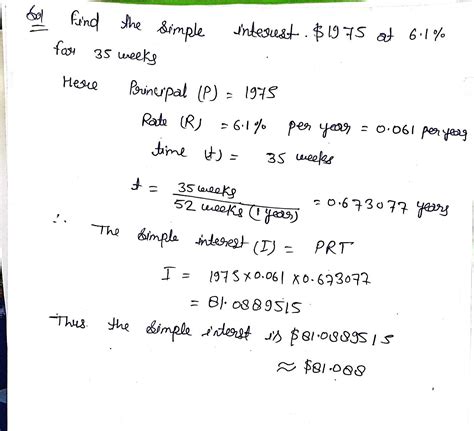 Sol Find the simple interest. $1975 at 6.1%
for 35 weeks
Here Principal (P) = 1975
Rate (R) = 6.1% per year = 0.061 per year
time (t) = 35 weeks
t = 35 weeks / 52 weeks (1 year) = 0.673077 years
∴ The simple interest (I) = PRT
I = 1975 × 0.061 × 0.673077
= 81.0889515
Thus the simple interst is $81.0889515
≈ $81.088